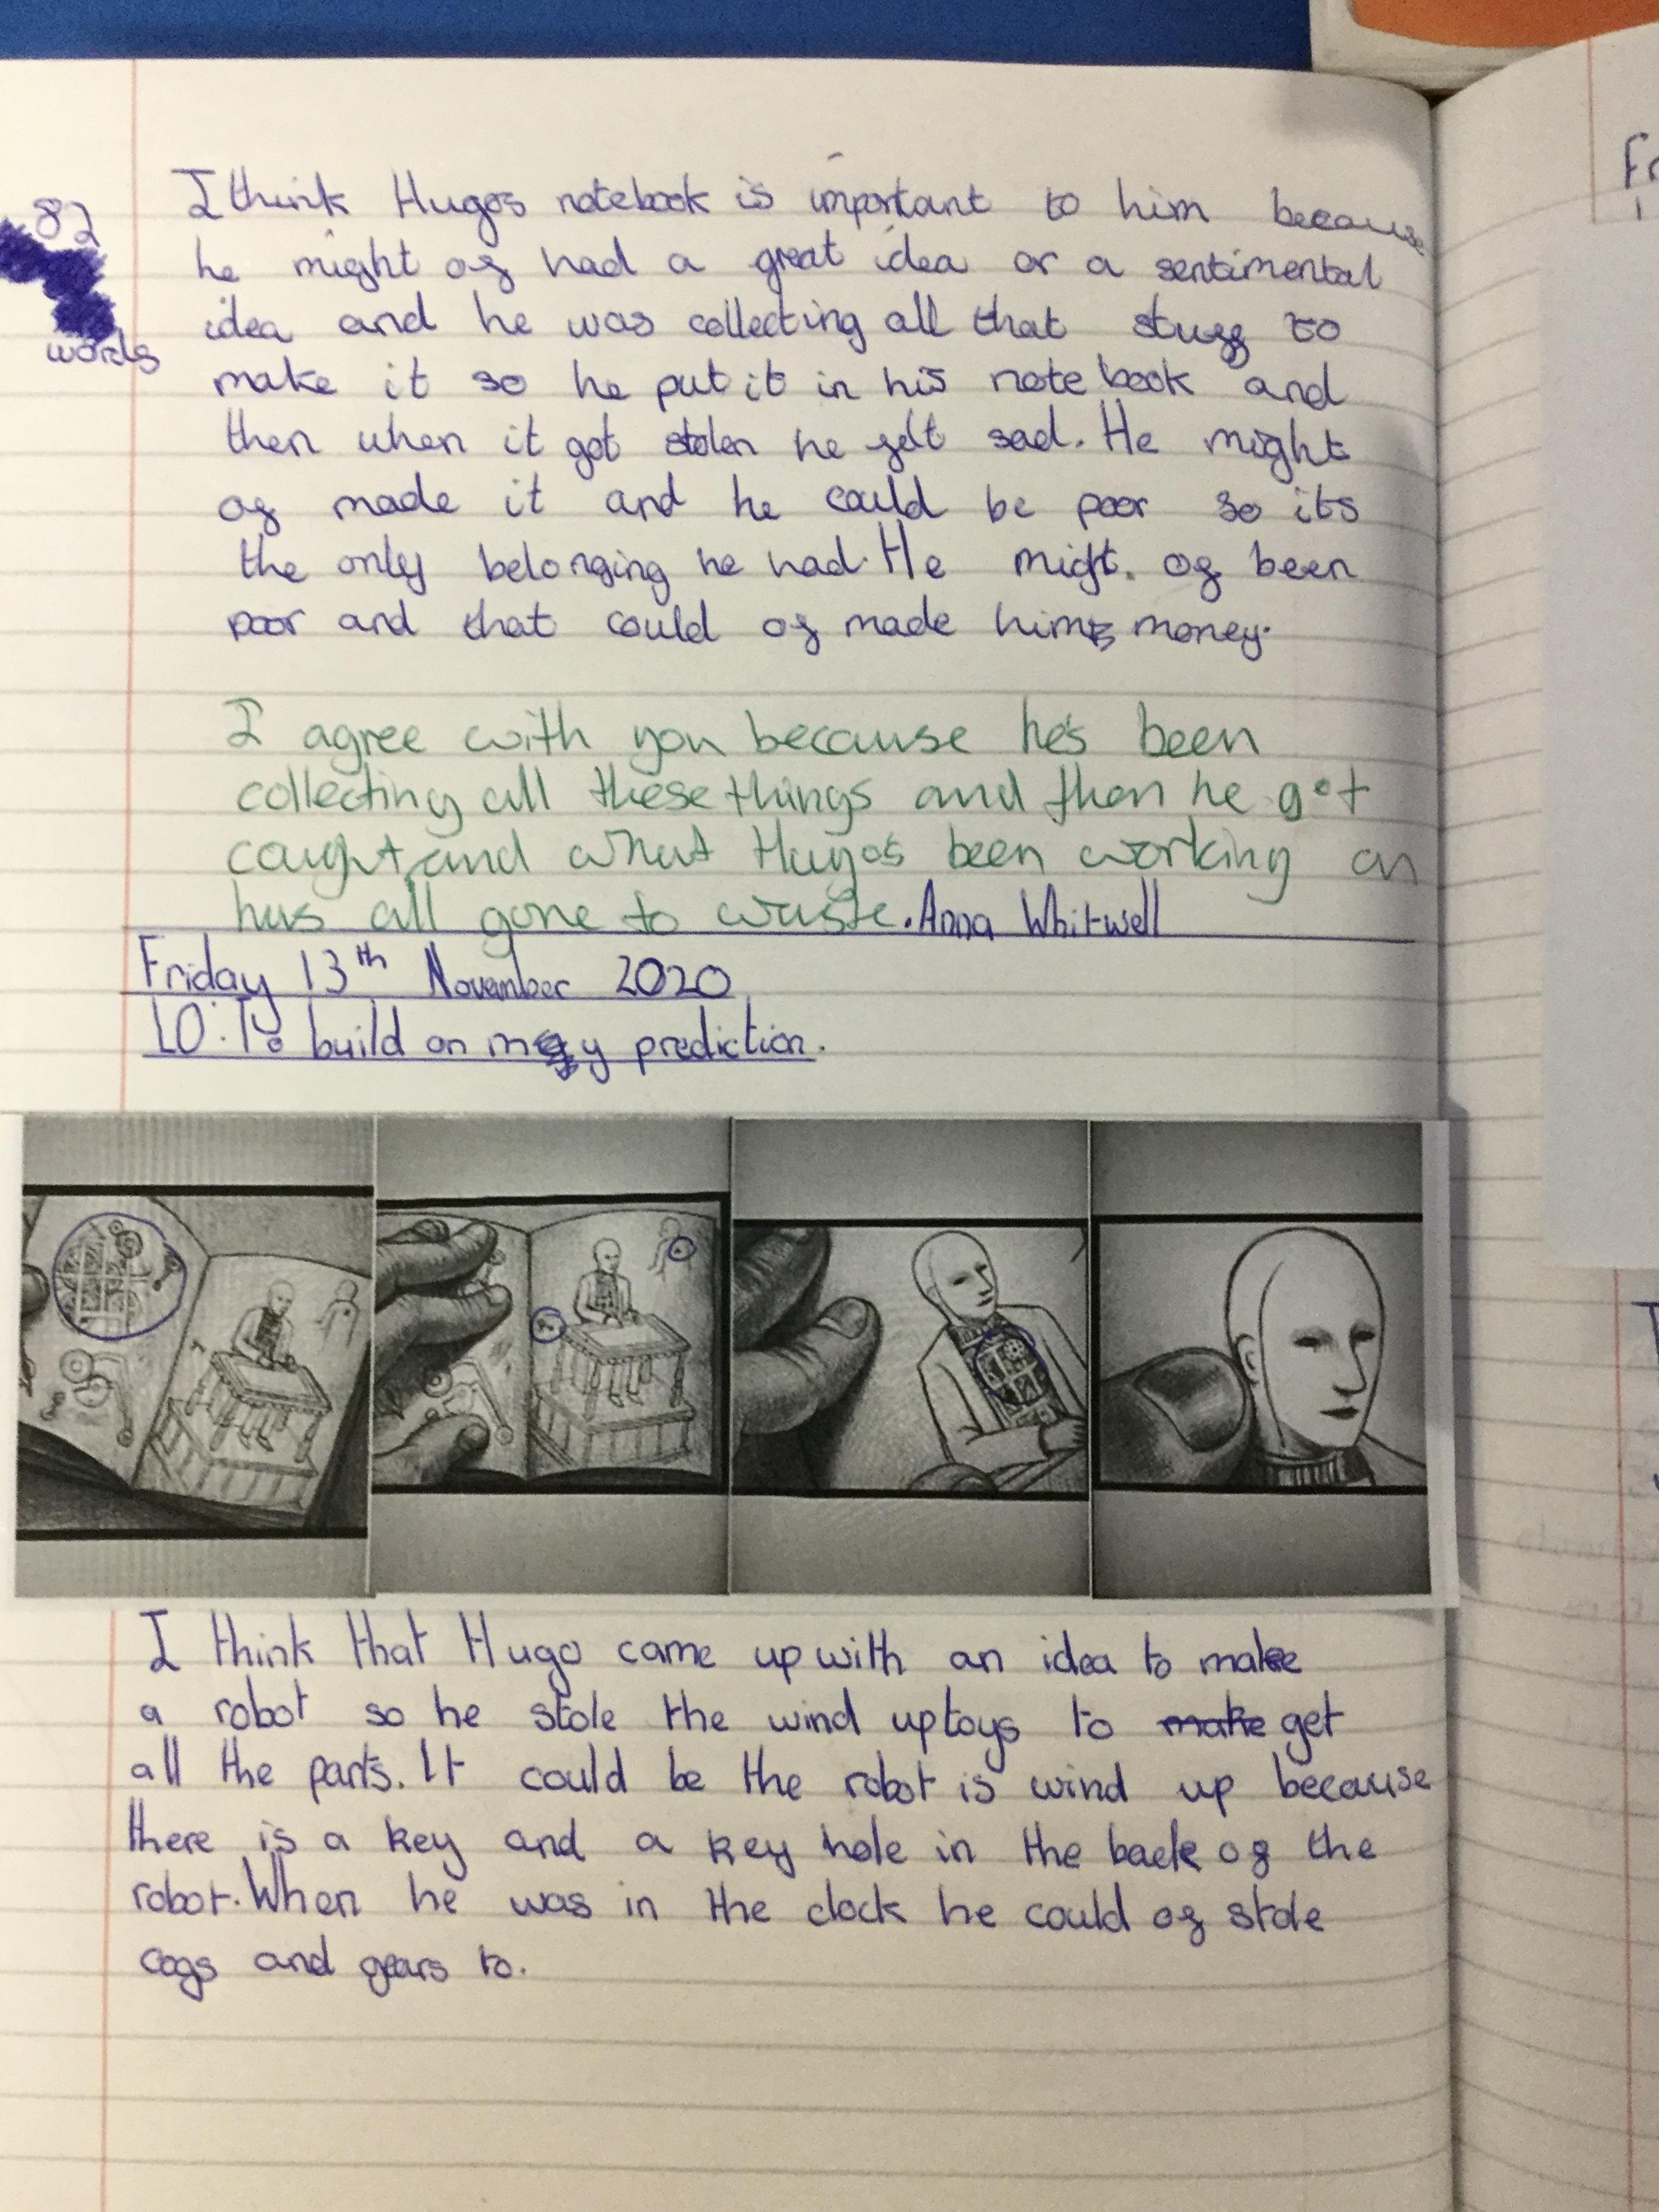 82
words
I think Hugos notebook is important to him because
he might of had a great idea or a sentimental
idea and he was collecting all that stuff to
make it so he put it in his note book and
then when it got stolen he felt sad. He might
of made it and he could be poor so its
the only belonging he had. He might of been
poor and that could of made him money.
I agree with you because he's been
collecting all these things and then he got
caught and what Hugo's been working on
has all gone to waste. Anna Whitwell
Friday 13th November 2020
LO: To build on my prediction.
I think that Hugo came up with an idea to make
a robot so he stole the wind up toys to make get
all the parts. It could be the robot is wind up because
there is a key and a key hole in the back of the
robot. When he was in the clock he could of stole
cogs and gears to.
Fr